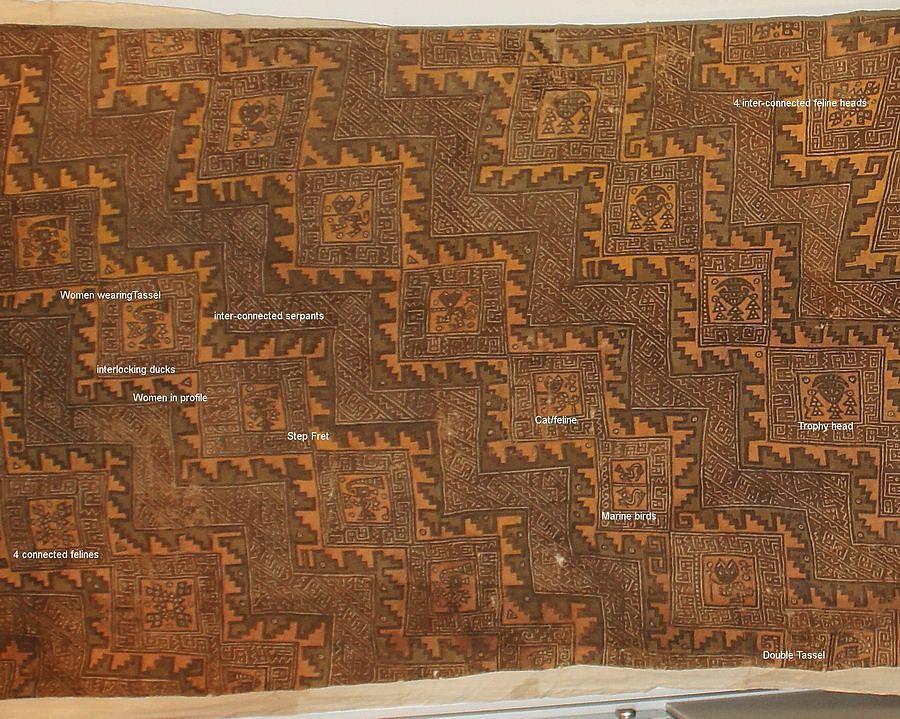 4 inter-connected feline heads
Women wearingTassel
inter-connected serpants
interlocking ducks
Women in profile
Cat/feline
Trophy head
Step Fret
Marine birds
4 connected felines
Double Tassel